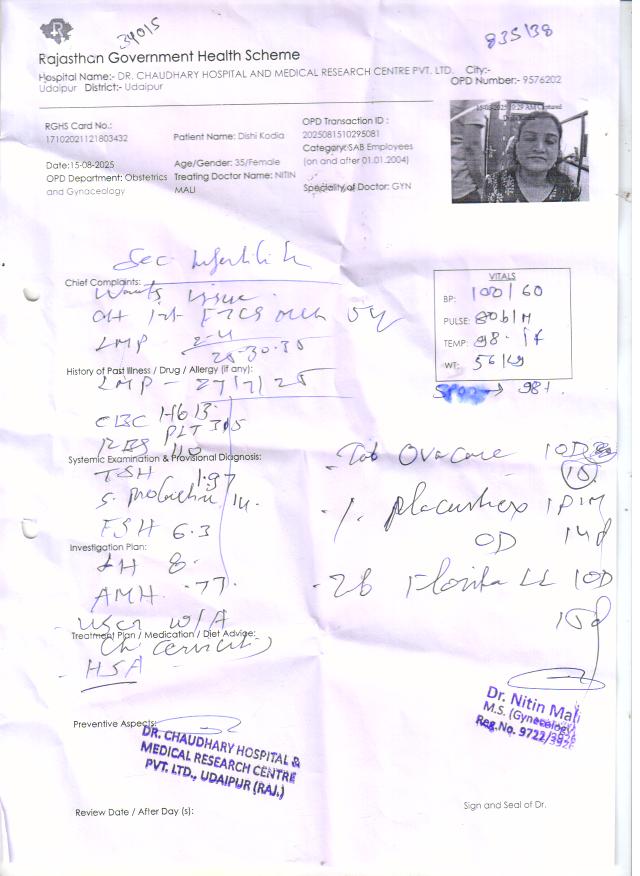 34015
835/38
Rajasthan Government Health Scheme
Hospital Name:- DR. CHAUDHARY HOSPITAL AND MEDICAL RESEARCH CENTRE PVT. LTD. City:-
Udaipur District:- Udaipur
OPD Number:- 9576202
RGHS Card No.:
17102021121803432
Patient Name: Dishi Kodia
OPD Transaction ID :
2025081510295081
Category:SAB Employees
(on and after 01.01.2004)
Date:15-08-2025
Age/Gender: 35/Female
OPD Department: Obstetrics
and Gynaceology
Treating Doctor Name: NITIN
MALI
Speciality of Doctor: GYN
Sec Infertility
Chief Complaints:
Wants issue
LMP
28-30-35
VITALS
BP: 100/60
PULSE: 80b/M
TEMP: 98.
WT: 56 kg
SPO2 → 98%.
History of Past Illness / Drug / Allergy (if any):
LMP - 27/7/25
CBC Hb 13.
PLT 305
RBS 110
Systemic Examination & Provisional Diagnosis:
TSH 1.97
S. Prolactin 14.
FSH 6.3
Investigation Plan:
LH 8.
AMH .77.
Tab Ovacare 1OD
OD 14d
1OD
15d
Treatment Plan / Medication / Diet Advige:
Ch Cervicitis
HSA
Preventive Aspects:
DR. CHAUDHARY HOSPITAL &
MEDICAL RESEARCH CENTRE
PVT. LTD., UDAIPUR (RAJ.)
Dr. Nitin Mali
M.S. (Gynecology)
Reg.No. 9722/3926
Review Date / After Day (s):
Sign and Seal of Dr.